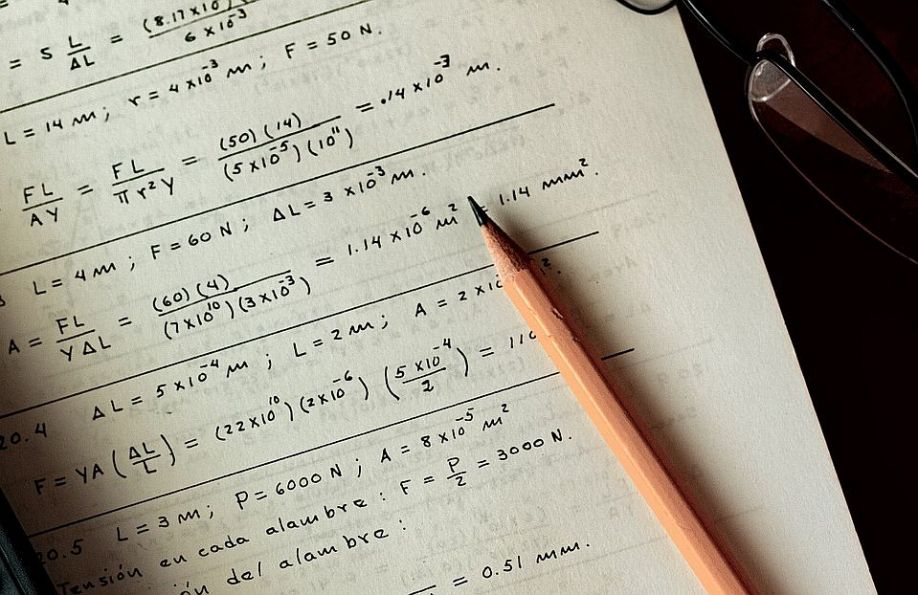 = 5 L/ΔL = (8.17×10)/(6×10⁻³)
L = 14 m; r = 4×10⁻³ m; F = 50 N.
FL/AY = FL/πr²Y = (50)(14)/(5×10⁻⁵)(10¹¹) = .14×10⁻³ m.
L = 4 m; F = 60 N; ΔL = 3×10⁻³ m.
A = FL/YΔL = (60)(4)/(7×10¹⁰)(3×10⁻³) = 1.14×10⁻⁶ m² = 1.14 mm².
20.4 ΔL = 5×10⁻⁴ m; L = 2 m; A = 2×10
F = YA(ΔL/L) = (22×10¹⁰)(2×10⁻⁶)(5×10⁻⁴/2) = 110
20.5 L = 3 m; P = 6000 N; A = 8×10⁻⁵ m²
Tensión en cada alambre: F = P/2 = 3000 N.
del alambre:
= 0.51 mm.